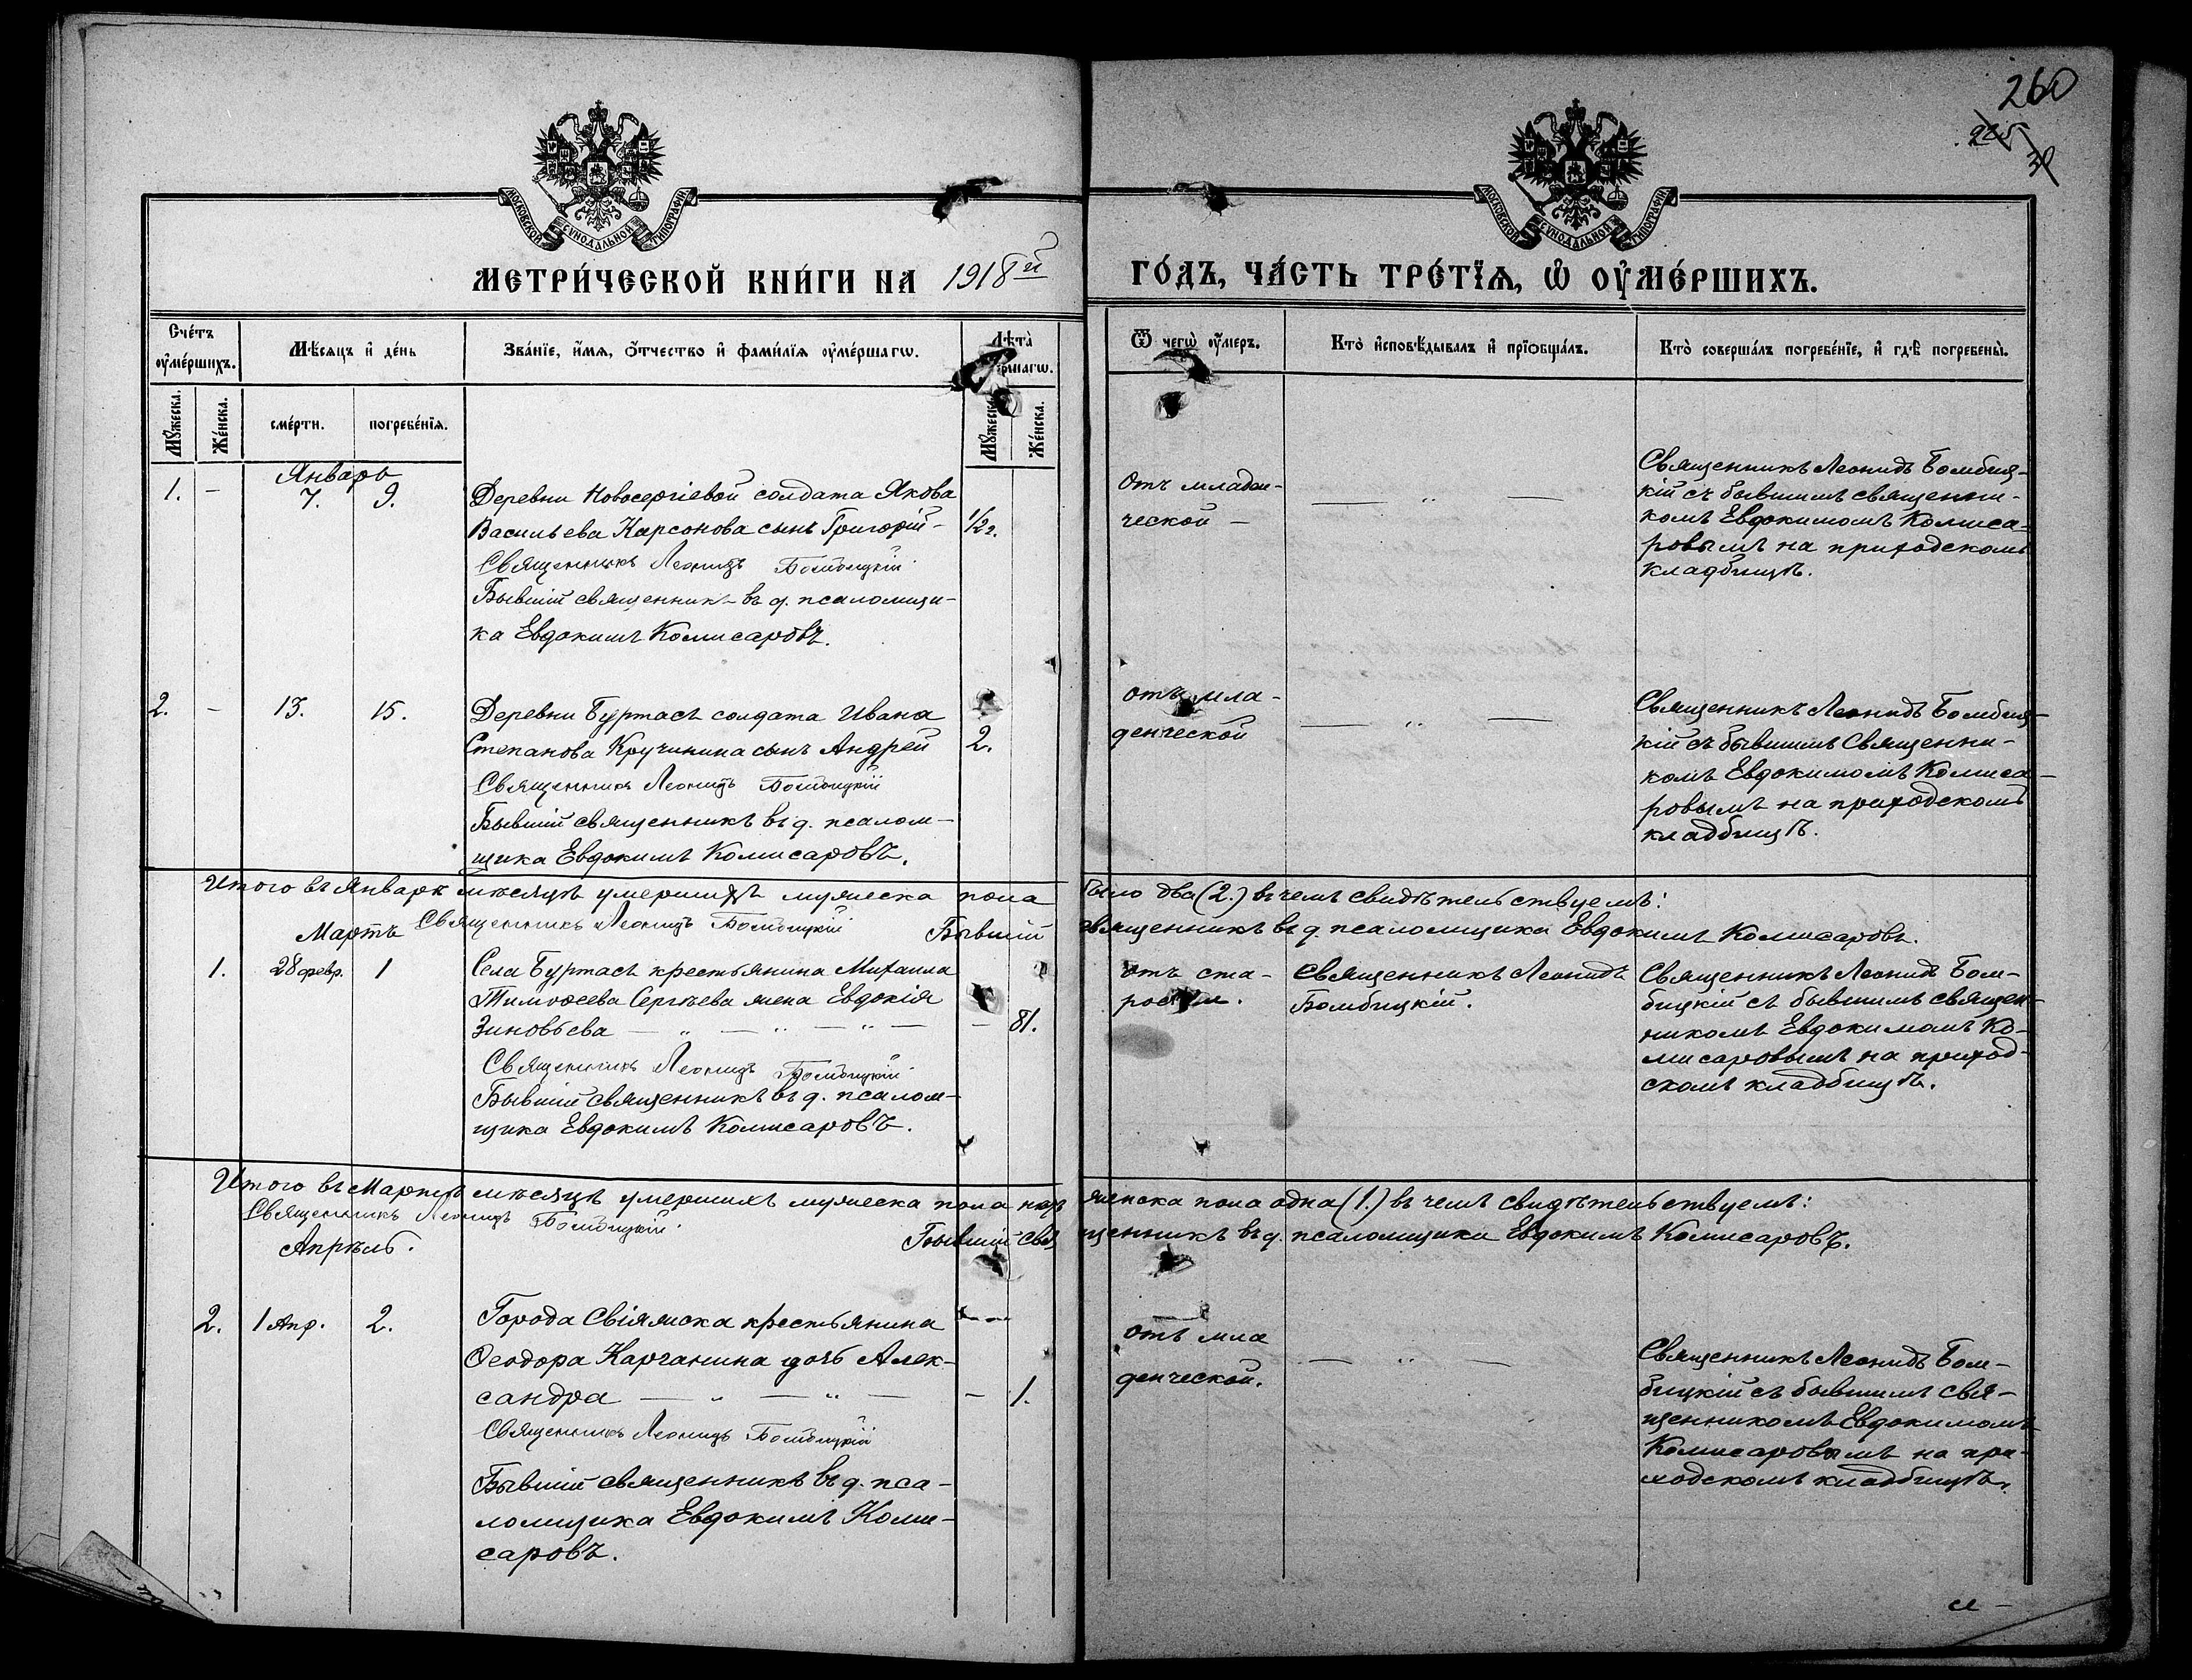 260
225
МОСКОВСКОЙ СѴНОДАЛЬНОЙ ТИПОГРАФІИ
МОСКОВСКОЙ СѴНОДАЛЬНОЙ ТИПОГРАФІИ
МЕТРИ́ЧЕСКОЙ КНИ́ГИ НА 1918й ГО́ДЪ, ЧА́СТЬ ТРЕ́ТІЯ, Ѡ ОУМЕ́РШИХЪ.
Сче́тъ оумершихъ.
Мꙋжеска.
Же́нска.
Мѣ́сяцъ и де́нь
сме́рти.
погребе́нія.
Зва́ніе, и́мя, о́тчество и фами́лія оуме́ршагѡ.
Лѣта̀
Мꙋжеска.
Же́нска.
Ѿ чегѡ̀ оу́меръ.
Кто̀ исповѣ́дывалъ и пріобща́лъ.
Кто̀ соверша́лъ погребе́ніе, и гдѣ̀ погребены̀.
Январь
1. – 7. 9.
Деревни Новосергіевой солдата Якова
Васильева Карсонова сынъ Григорій – 1/2 г.
Священникъ Леонидъ Бомбицкій
Бывшій священникъ въ д. псаломщи-
ка Евдокимъ Комисаровъ.
Отъ младен-
ческой –
— „ —
Священникъ Леонидъ Бомбиц-
кій съ бывшимъ священни-
комъ Евдокимомъ Комиса-
ровымъ на приходскомъ
кладбищѣ.
2. – 13. 15.
Деревни Буртасъ солдата Ивана
Степанова Кручинина сынъ Андрей 2.
Священникъ Леонидъ Бомбицкій
Бывшій священникъ въ д. псалом-
щика Евдокимъ Комисаровъ.
отъ мла-
денческой
— „ —
Священникъ Леонидъ Бомбиц-
кій съ бывшимъ Священни-
комъ Евдокимомъ Комиса-
ровымъ на приходскомъ
кладбищѣ.
Итого въ Январѣ мѣсяцѣ умершихъ мужеска пола было два (2.) въ чемъ свидѣтельствуемъ:
Священникъ Леонидъ Бомбицкій Бывшій священникъ въ д. псаломщика Евдокимъ Комисаровъ.
Мартъ
1. 28 февр. 1
Села Буртасъ крестьянина Михаила
Тимоѳеева Сергѣева жена Евдокія
Зиновьева — „ — „ — „ — – 81.
Священникъ Леонидъ Бомбицкій
Бывшій священникъ въ д. псалом-
щика Евдокимъ Комисаровъ.
отъ ста-
рости.
Священникъ Леонидъ
Бомбицкій.
Священникъ Леонидъ Бом-
бицкій съ бывшимъ священ-
никомъ Евдокимомъ Ко-
мисаровымъ на приход-
скомъ кладбищѣ.
Итого въ Мартѣ мѣсяцѣ умершихъ мужеска пола женска пола одна (1.) въ чемъ свидѣтельствуемъ:
Священникъ Леонидъ Бомбицкій Бывшій священникъ въ д. псаломщика Евдокимъ Комисаровъ.
Апрѣль.
2. 1 Апр. 2.
Города Свіяжска крестьянина
Ѳеодора Карчанина дочь Алек-
сандра — „ — „ — – 1.
Священникъ Леонидъ Бомбицкій
Бывшій священникъ въ д. пса-
ломщика Евдокимъ Коми-
саровъ.
отъ мла
денческой.
— „ —
Священникъ Леонидъ Бом-
бицкій съ бывшимъ свя-
щенникомъ Евдокимомъ
Комисаровымъ на при-
ходскомъ кладбищѣ.